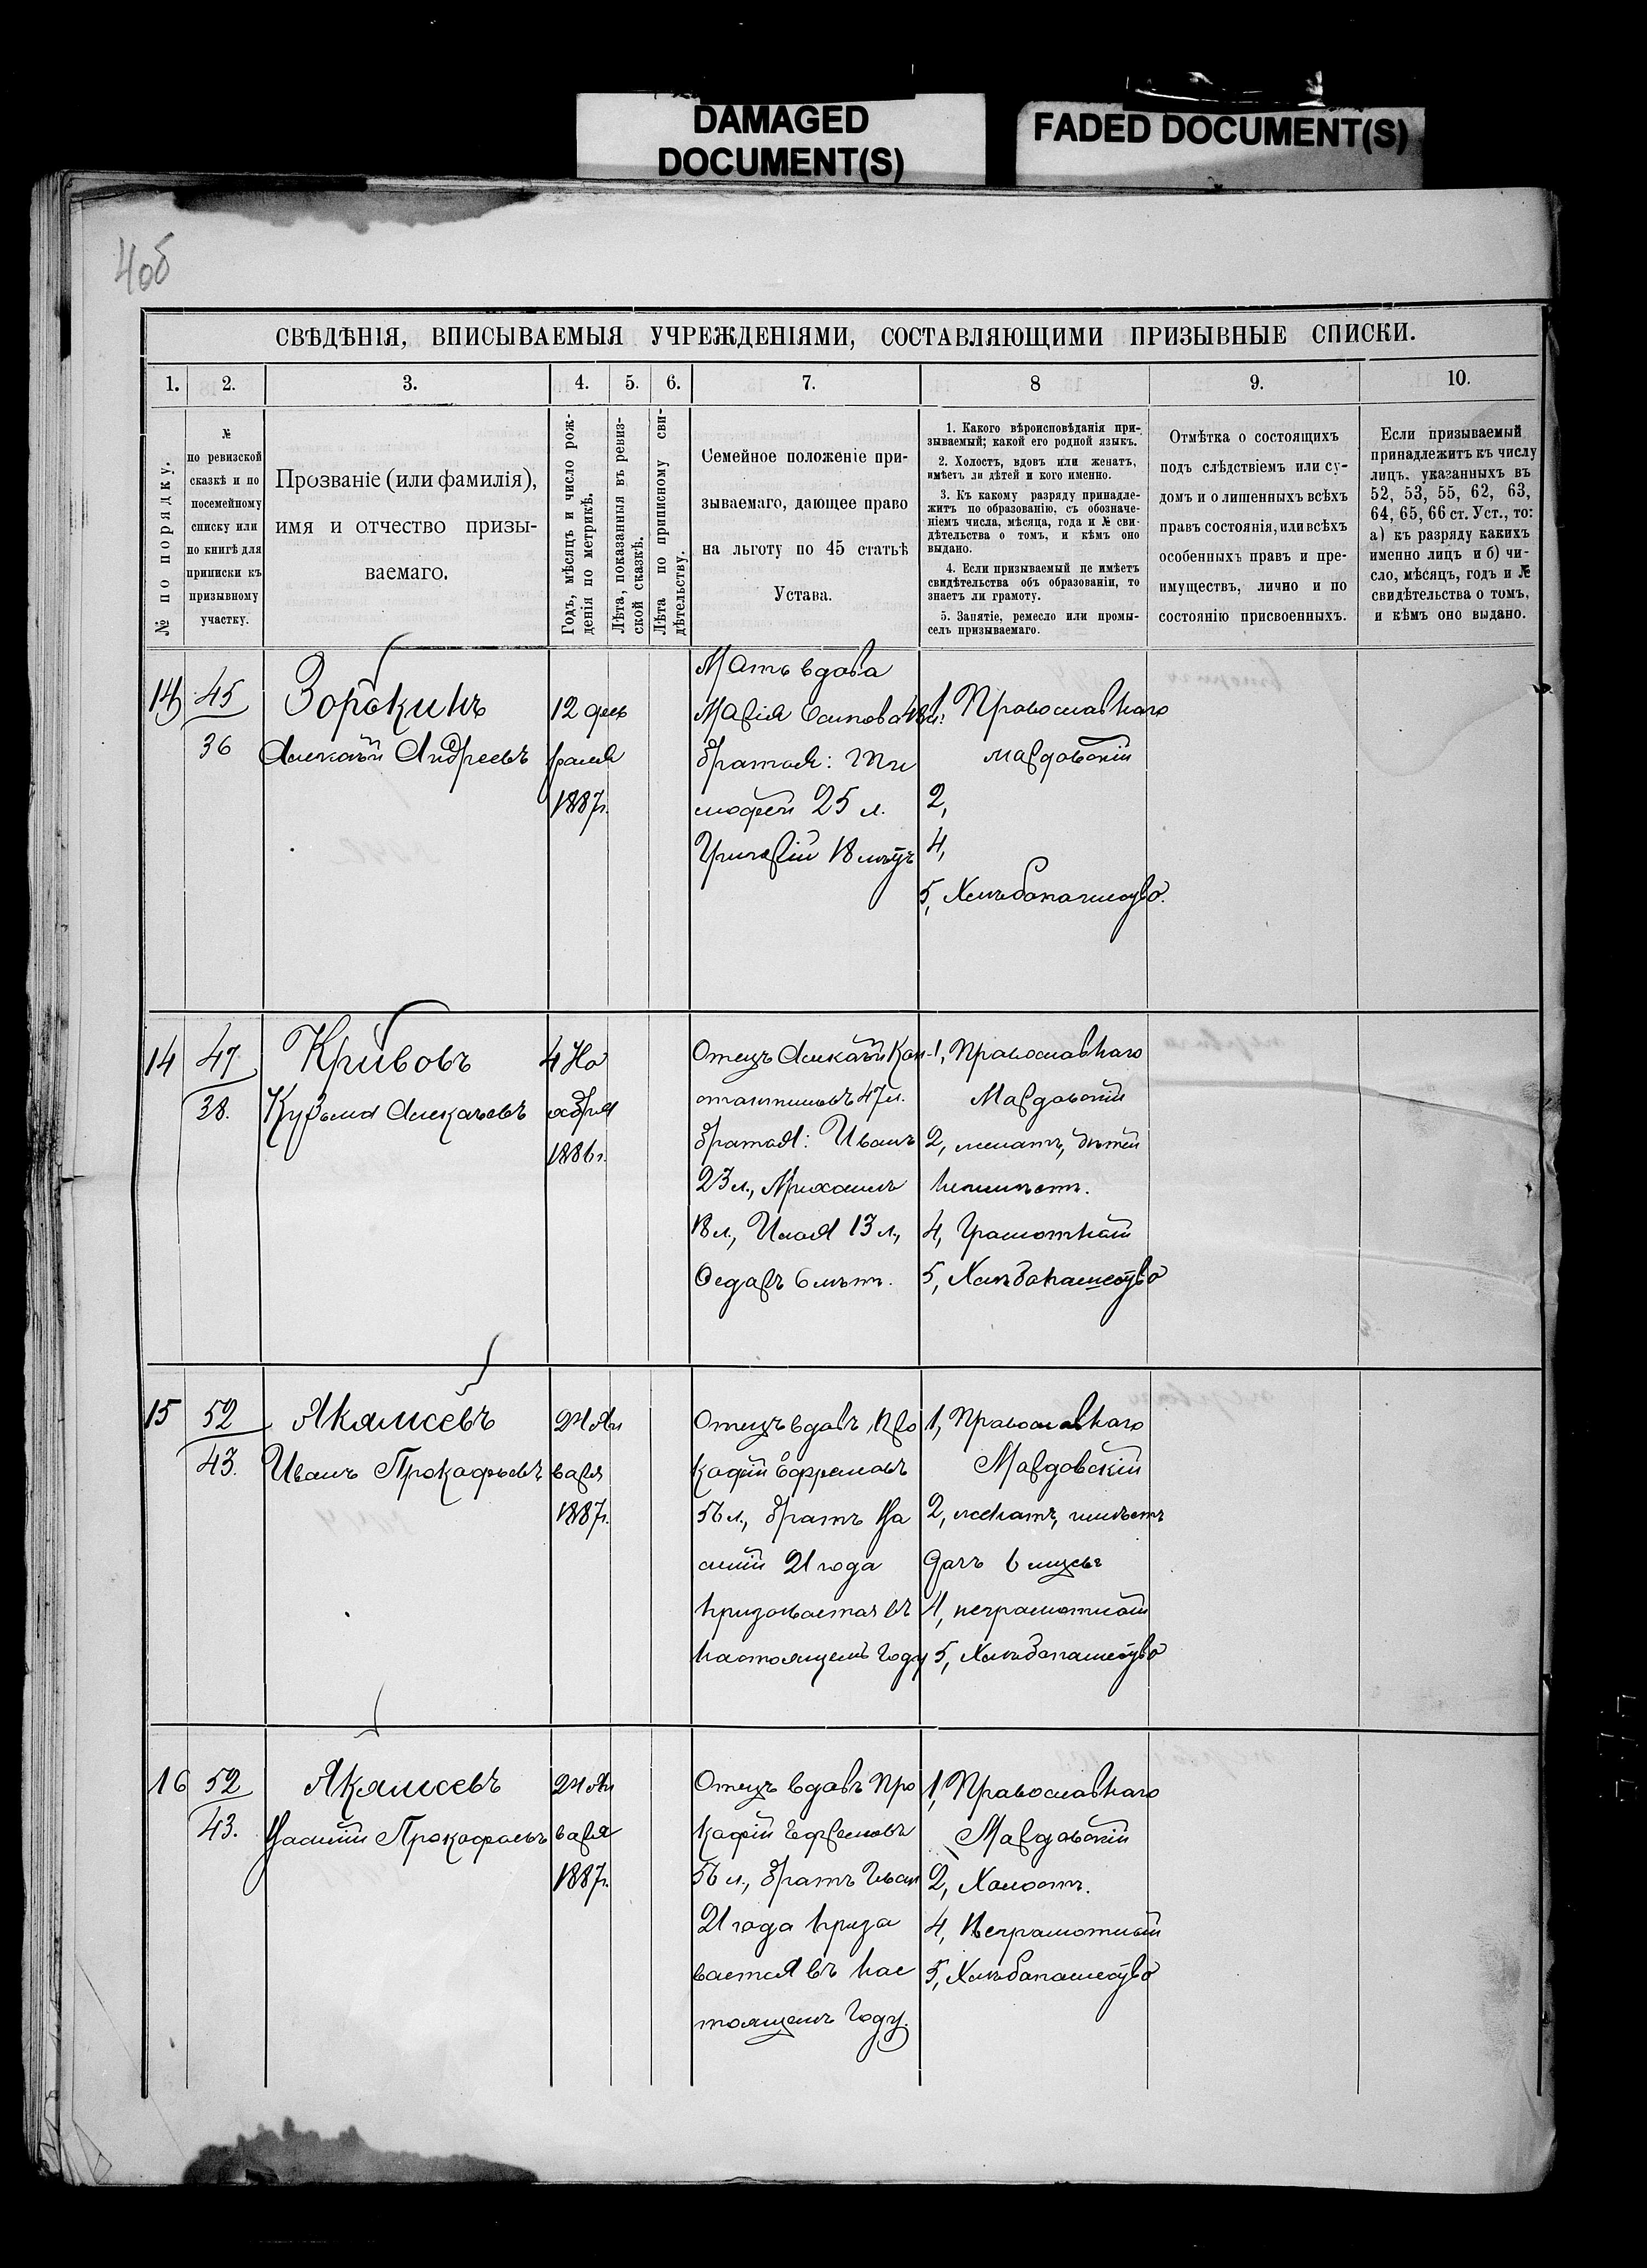 DAMAGED
DOCUMENT(S)
FADED DOCUMENT(S)
4об
СВѢДѢНІЯ, ВПИСЫВАЕМЫЯ УЧРЕЖДЕНІЯМИ, СОСТАВЛЯЮЩИМИ ПРИЗЫВНЫЕ СПИСКИ.
1. 2. 3. 4. 5. 6. 7. 8 9. 10.
№ по порядку.
№
по ревизской
сказкѣ и по
посемейному
списку или
по книгѣ для
приписки къ
призывному
участку.
Прозваніе (или фамилія),
имя и отчество призы-
ваемаго.
Годъ, мѣсяцъ и число рож-
денія по метрикѣ.
Лѣта, показанныя въ ревиз-
ской сказкѣ.
Лѣта по приписному сви-
дѣтельству.
Семейное положеніе при-
зываемаго, дающее право
на льготу по 45 статьѣ
Устава.
1. Какого вѣроисповѣданія при-
зываемый; какой его родной языкъ.
2. Холостъ, вдовъ или женатъ,
имѣетъ ли дѣтей и кого именно.
3. Къ какому разряду принадле-
житъ по образованію, съ обозначе-
ніемъ числа, мѣсяца, года и № сви-
дѣтельства о томъ, и кѣмъ оно
выдано.
4. Если призываемый не имѣетъ
свидѣтельства объ образованіи, то
знаетъ ли грамоту.
5. Занятіе, ремесло или промы-
селъ призываемаго.
Отмѣтка о состоящихъ
подъ слѣдствіемъ или су-
домъ и о лишенныхъ всѣхъ
правъ состоянія, или всѣхъ
особенныхъ правъ и пре-
имуществъ, лично и по
состоянію присвоенныхъ.
Если призываемый
принадлежитъ къ числу
лицъ, указанныхъ въ
52, 53, 55, 62, 63,
64, 65, 66 ст. Уст., то:
а) къ разряду какихъ
именно лицъ и б) чи-
сло, мѣсяцъ, годъ и №
свидѣтельства о томъ,
и кѣмъ оно выдано.
45
36
Зорькинъ
Алексѣй Андреевъ
12 фев
раля
1887г.
Мать вдова
Марія Осипова 48 л.
братья: Ти
мофей 25 л.
Григорій 18 лѣтъ
1, Православнаго
мордовскій
2,
4,
5, Хлѣбопашество.
14
47
38.
Кривовъ
Кузьма Алексѣевъ
4 Но
ября
1886г.
Отецъ Алексѣй Кон-
стантиновъ 47 л.
братья: Иванъ
23 л., Михаилъ
18 л., Илья 13 л.,
Федоръ 6 лѣтъ.
1, Православнаго
Мордовскій
2, женатъ, дѣтей
неимѣетъ.
4, Грамотный
5, Хлѣбопашество
15
52
43.
Якямсевъ
Иванъ Прокофьевъ
24 Ян
варя
1887г.
Отецъ вдовъ Про
кофій Ефремовъ
56 л., братъ Ва
силій 21 года
призывается въ
настоящемъ году
1, Православнаго
Мордовскій
2, женатъ, имѣетъ
дочь 6 мѣсяц
4, неграмотный
5, Хлѣбопашество
16
52
43.
Якямсевъ
Василій Прокофьевъ
24 Ян
варя
1887г.
Отецъ вдовъ Про
кофій Ефремовъ
56 л., братъ Иван
21 года призы
вается въ нас
тоящемъ году.
1, Православнаго
Мордовскій
2, Холостъ.
4, Неграмотный
5, Хлѣбопашество